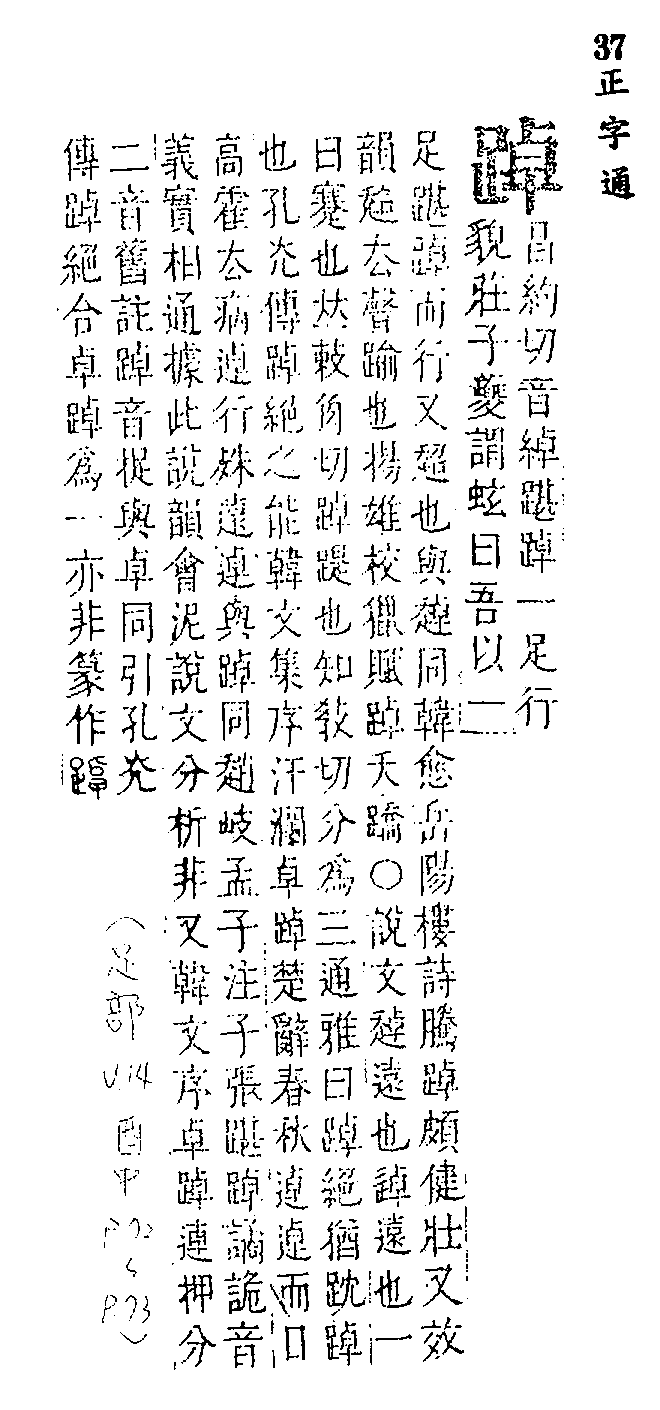 37正字通
踔 昌約切音綽踸踔一足行
貌莊子夔謂蚿曰吾以一
足踸踔而行又超也與趠同韓愈岳陽樓詩騰踔頗健壯又效
韻𠫓聲踰也揚雄校獵賦踔夭蹻○說文趠遠也逴遠也一
曰蹇也 敕角切踔踶也知敎切分爲三通雅曰踔絕猶趻踔
也孔光傳踔絕之能韓文集序汗瀾卓踔楚辭春秋逴逴而日
高霍去病逴行殊遠逴與踔同趙岐孟子注子張踸踔譎詭音
義實相通據此說韻會泥說文分析非又韓文序卓踔連押分
二音舊註踔音捉與卓同引孔光
傳踔絕合卓踔爲一亦非篆作踔
(足部
V.14
酉中
P.72
~
P.73)